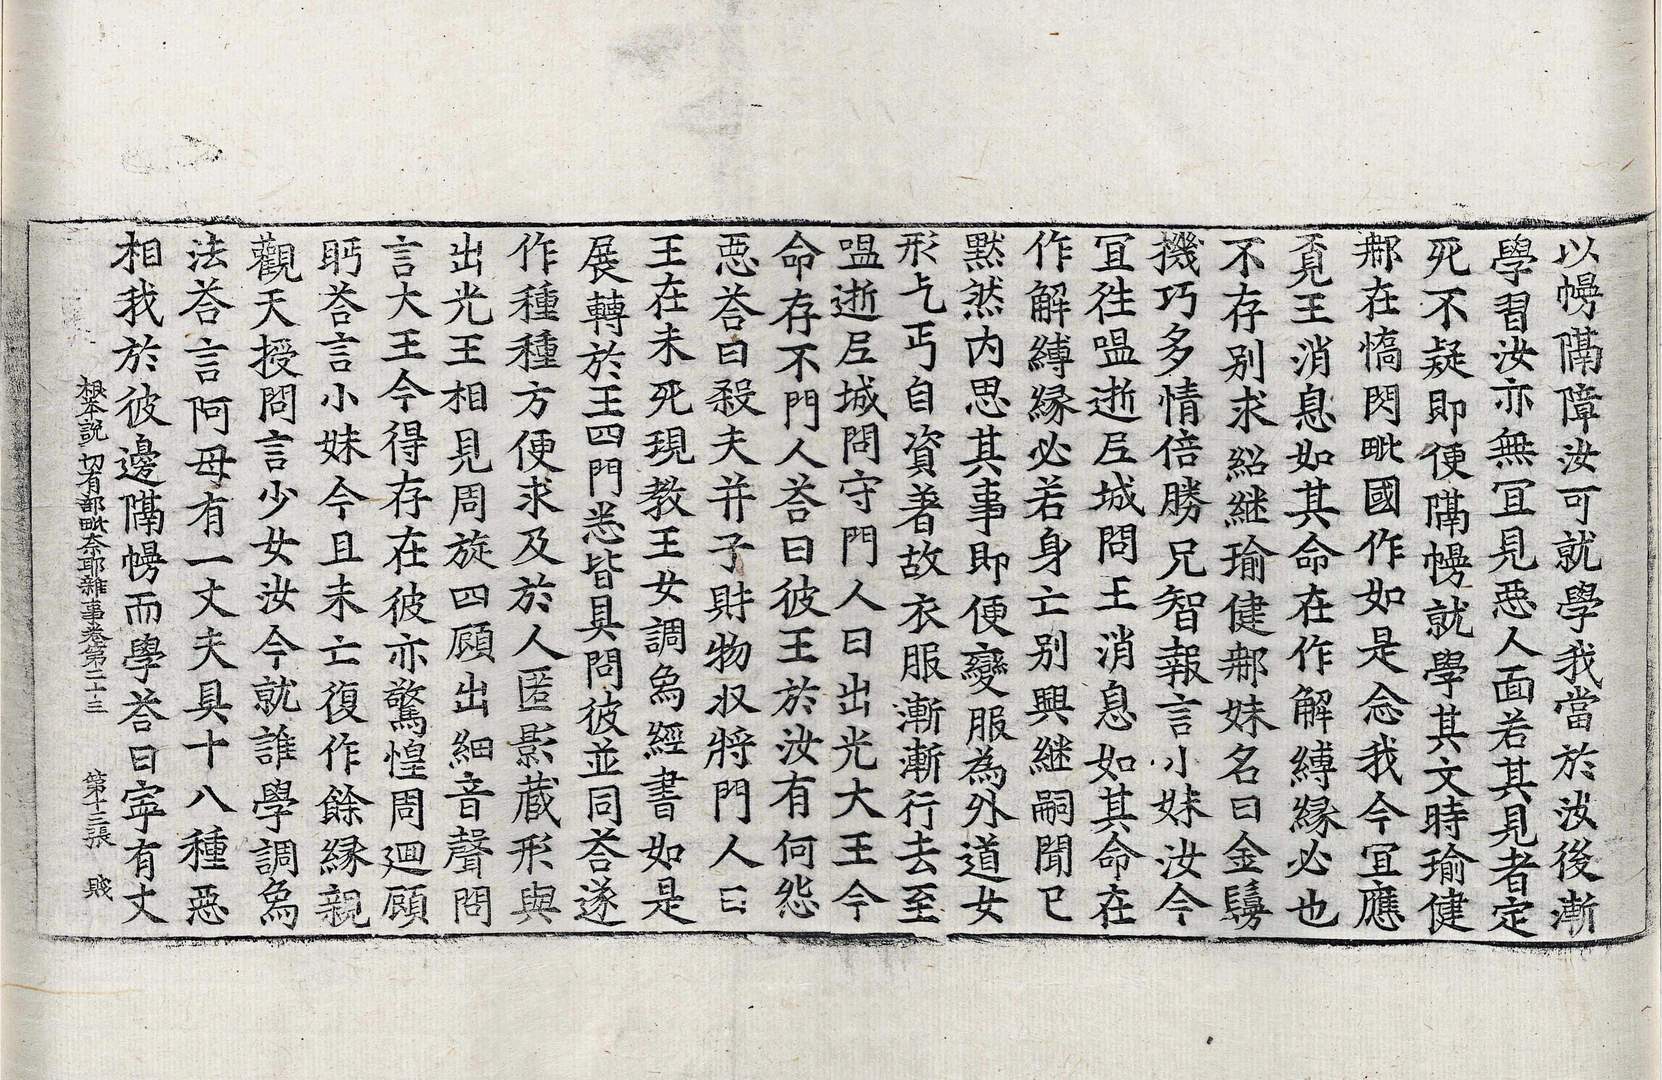 以幔隔障汝可就學我當於汝後漸
學習汝亦無冝見惡人面若其見者定
死不疑即便隔幔就學其文時瑜健
那在憍閃毗國作如是念我今冝應
覔王消息如其命在作解縛縁必也
不存別求紹継瑜健那妹名曰金鬘
機巧多情倍勝兄智報言小妹汝今
冝往嗢逝尼城問王消息如其命在
作解縛縁必若身亡別興継嗣聞已
黙然内思其事即便變服為外道女
形乞丐自資著故衣服漸漸行去至
嗢逝尼城問守門人曰出光大王今
命存不門人荅曰彼王於汝有何怨
惡荅曰殺夫并子財物収將門人曰
王在未死現教王女調爲經書如是
展轉於王四門悉皆具問彼並同荅遂
作種種方便求及於人匿影藏形與
出光王相見周旋四顧出細音聲問
言大王今得存在彼亦驚惶周迴顧
眄荅言小妹今且未亡復作餘縁親
觀天授問言少女汝今就誰學調爲
法荅言阿母有一丈夫具十八種惡
相我於彼邊隔幔而學荅曰寧有丈
根本說一切有部毗奈耶雜事卷第二十三　第十三張　賤